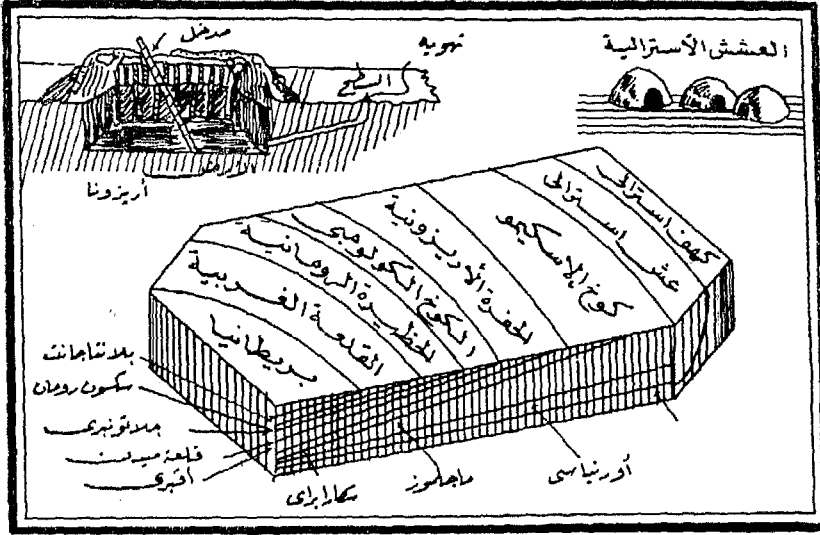 العشش الأسترالية
تهويه
مدخل
السطح
الأرض
أريزونا
كهف استرالى
عش استرالى
كوخ الإسكيمو
الحفرة الأريزونية
الكوخ الكولومبى
الحظيرة الرومانية
القلعة الغربية
بريطانيا
بلانتاجانت
سكسون رومان
جلاتونبرى
قلعة ميدن
أڤبرى
سكارابراى
ماجلموز
أورنياسى